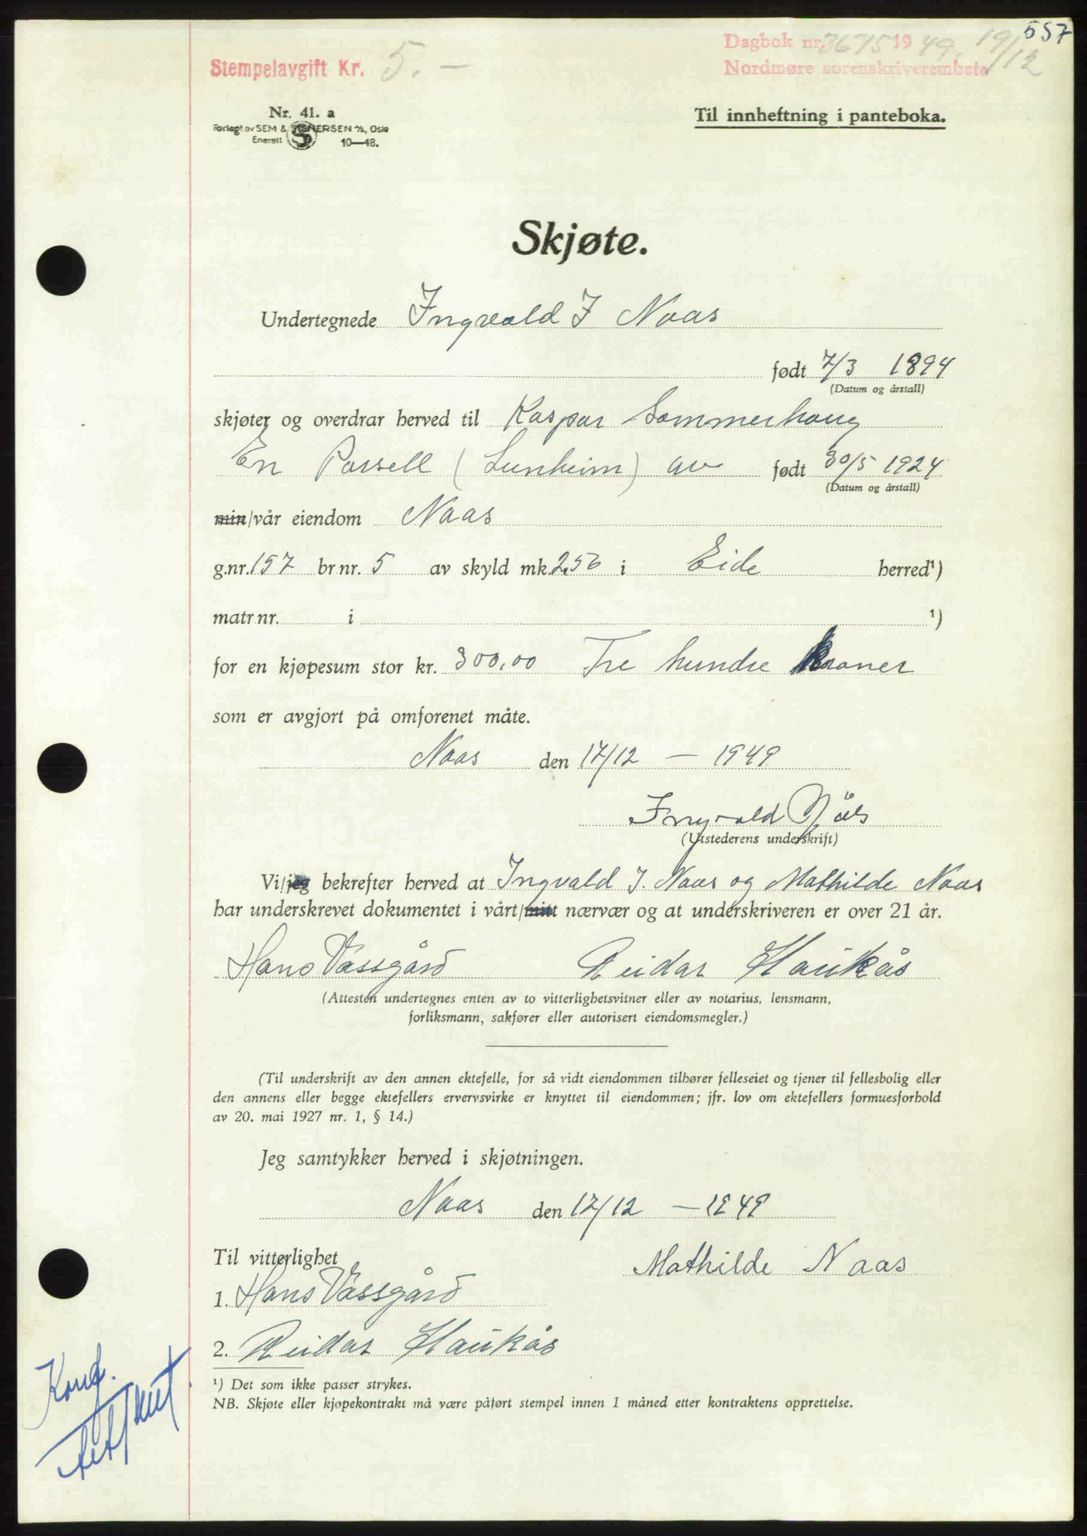 557
Dagbok nr. 3675 1949. 19/12
Stempelavgift Kr. 5.—
Nordmøre sorenskriverembete
Nr. 41. a
Til innheftning i panteboka.
Forlagt av SEM & STENERSEN A/S, Oslo
Enerett S 10—48.
Skjøte.
Undertegnede Ingvald I Naas
født 7/3 1894
(Datum og årstall)
skjøter og overdrar herved til Kaspar Sommerhaug
En Parsell (Lunheim) av født 30/5 1924
(Datum og årstall)
min/vår eiendom Naas
g.nr. 157 br nr. 5 av skyld mk. 2,56 i Eide herred¹)
matr nr. i ¹)
for en kjøpesum stor kr. 300,00 Tre hundre kroner
som er avgjort på omforenet måte.
Naas den 17/12 — 1949
Ingvald Nås
(Utstederens underskrift)
Vi/jeg bekrefter herved at Ingvald I. Naas og Mathilde Naas
har underskrevet dokumentet i vårt/mitt nærvær og at underskriveren er over 21 år.
Hans Vassgård Reidar Haukås
(Attesten undertegnes enten av to vitterlighetsvitner eller av notarius, lensmann,
forliksmann, sakfører eller autorisert eiendomsmegler.)
(Til underskrift av den annen ektefelle, for så vidt eiendommen tilhører felleseiet og tjener til fellesbolig eller
den annens eller begge ektefellers ervervsvirke er knyttet til eiendommen; jfr. lov om ektefellers formuesforhold
av 20. mai 1927 nr. 1, § 14.)
Jeg samtykker herved i skjøtningen.
Naas den 17/12 — 1949
Til vitterlighet
Mathilde Naas
1. Hans Vassgård
2. Reidar Haukås
¹) Det som ikke passer strykes.
NB. Skjøte eller kjøpekontrakt må være påført stempel innen 1 måned etter kontraktens opprettelse.